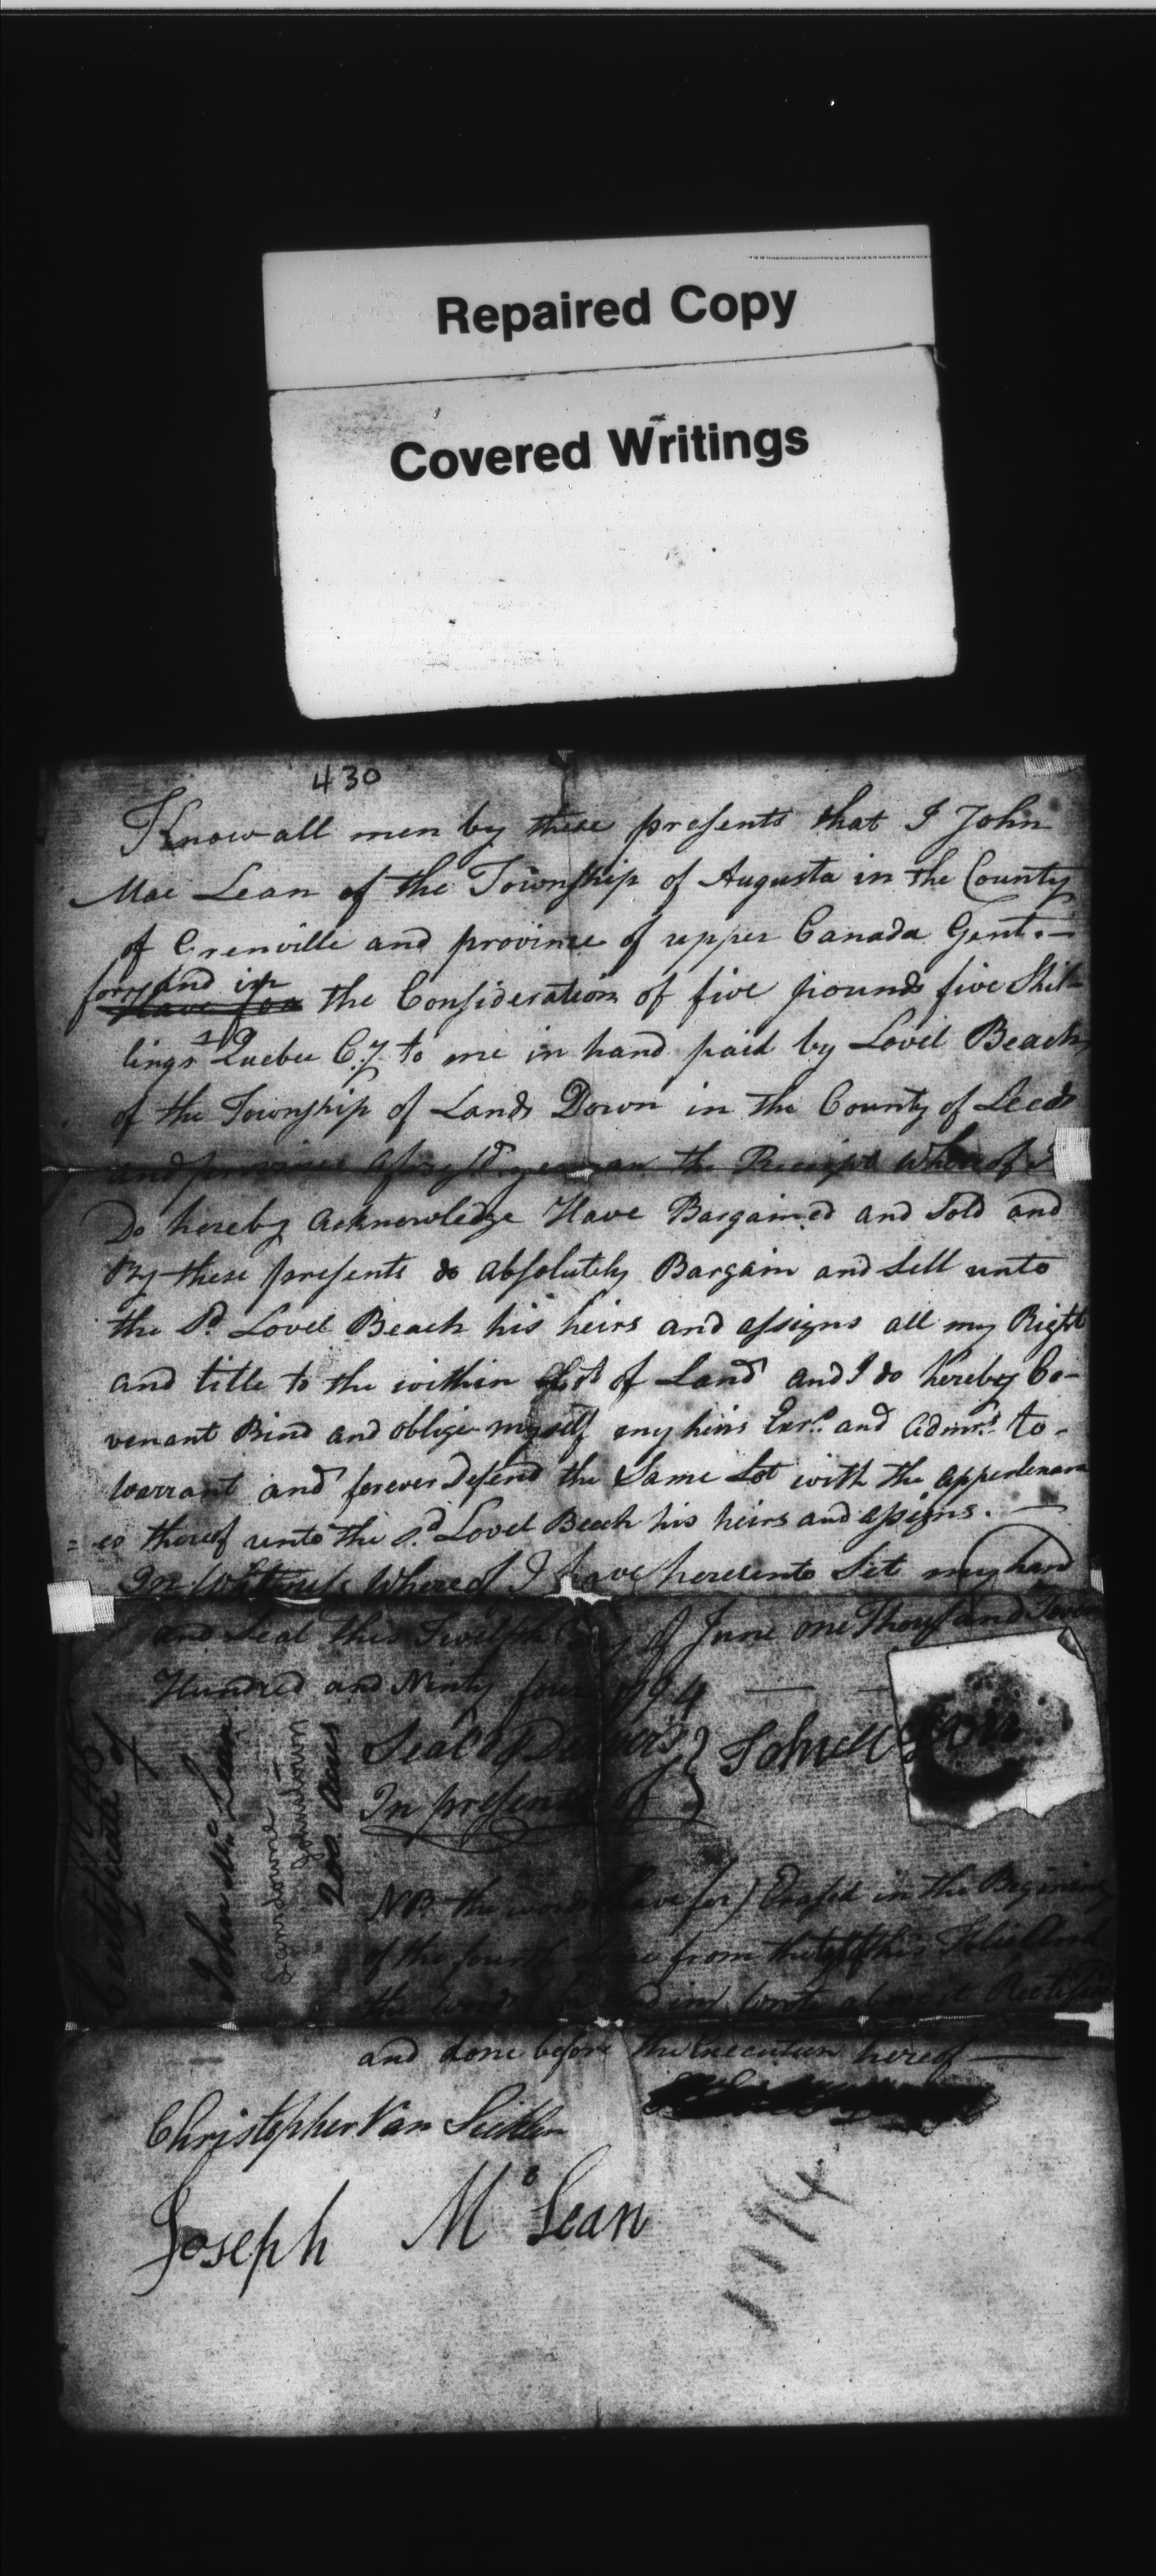 Repaired Copy
Covered Writings
430
Know all men by these presents that I John
Mac Lean of the Township of Augusta in the County
of Grenville and province of upper Canada Gent. —
for and in
Have for the Consideration of five pounds five Shil-
lings Quebec C.y to me in hand paid by Lovel Beach
of the Township of Lands Down in the County of Leeds
and province afores.d yeoman the Receipt Whereof I
Do hereby acknowledge Have Bargained and Sold and
By these presents do absolutely Bargain and Sell unto
the S.d Lovel Beach his heirs and assigns all my Right
and title to the within Lot of Land and I do hereby Co-
venant Bind and oblige myself my heirs Exr.s and Admr.s to -
warrant and forever Defend the Same Lot with the appertenanc
= es thereof unto the s.d Lovel Beach his heirs and assigns. —
In Witness Whereof I have hereunto Set my hand
and Seal this Twelfth Day of June one Thousand
Hundred and Ninty four 1794 — —
Seal'd
In presence of
John
Certificate
John Mc Lean
Lansdowne
Johnstown
200 Acres
NB. the words (Have for) Erased in the Begining
of the fourth Line from the top of this
the words wrote above
and done before the Execution hereof —
Christopher Van
Joseph Mc Lean
1794